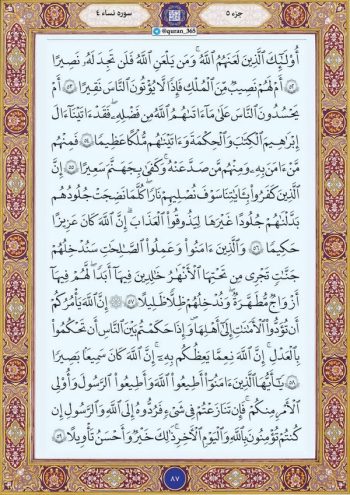 جزء ۵
سوره نساء ۴
@quran_365
أُوْلَٰٓئِكَ ٱلَّذِينَ لَعَنَهُمُ ٱللَّهُ ۖ وَمَن يَلْعَنِ ٱللَّهُ فَلَن تَجِدَ لَهُۥ نَصِيرًا
﴿٥٢﴾ أَمْ لَهُمْ نَصِيبٌ مِّنَ ٱلْمُلْكِ فَإِذًا لَّا يُؤْتُونَ ٱلنَّاسَ نَقِيرًا ﴿٥٣﴾ أَمْ
يَحْسُدُونَ ٱلنَّاسَ عَلَىٰ مَآ ءَاتَىٰهُمُ ٱللَّهُ مِن فَضْلِهِۦ ۖ فَقَدْ ءَاتَيْنَآ ءَالَ
إِبْرَٰهِيمَ ٱلْكِتَٰبَ وَٱلْحِكْمَةَ وَءَاتَيْنَٰهُم مُّلْكًا عَظِيمًا ﴿٥٤﴾ فَمِنْهُم
مَّنْ ءَامَنَ بِهِۦ وَمِنْهُم مَّن صَدَّ عَنْهُ ۚ وَكَفَىٰ بِجَهَنَّمَ سَعِيرًا ﴿٥٥﴾ إِنَّ
ٱلَّذِينَ كَفَرُواْ بِـَٔايَٰتِنَا سَوْفَ نُصْلِيهِمْ نَارًا كُلَّمَا نَضِجَتْ جُلُودُهُم
بَدَّلْنَٰهُمْ جُلُودًا غَيْرَهَا لِيَذُوقُواْ ٱلْعَذَابَ ۗ إِنَّ ٱللَّهَ كَانَ عَزِيزًا
حَكِيمًا ﴿٥٦﴾ وَٱلَّذِينَ ءَامَنُواْ وَعَمِلُواْ ٱلصَّٰلِحَٰتِ سَنُدْخِلُهُمْ
جَنَّٰتٍ تَجْرِى مِن تَحْتِهَا ٱلْأَنْهَٰرُ خَٰلِدِينَ فِيهَآ أَبَدًا ۖ لَّهُمْ فِيهَآ
أَزْوَٰجٌ مُّطَهَّرَةٌ ۖ وَنُدْخِلُهُمْ ظِلًّا ظَلِيلًا ﴿٥٧﴾ إِنَّ ٱللَّهَ يَأْمُرُكُمْ
أَن تُؤَدُّواْ ٱلْأَمَٰنَٰتِ إِلَىٰٓ أَهْلِهَا وَإِذَا حَكَمْتُم بَيْنَ ٱلنَّاسِ أَن تَحْكُمُواْ
بِٱلْعَدْلِ ۚ إِنَّ ٱللَّهَ نِعِمَّا يَعِظُكُم بِهِۦٓ ۗ إِنَّ ٱللَّهَ كَانَ سَمِيعًۢا بَصِيرًا
﴿٥٨﴾ يَٰٓأَيُّهَا ٱلَّذِينَ ءَامَنُوٓاْ أَطِيعُواْ ٱللَّهَ وَأَطِيعُواْ ٱلرَّسُولَ وَأُوْلِى
ٱلْأَمْرِ مِنكُمْ ۖ فَإِن تَنَٰزَعْتُمْ فِى شَىْءٍ فَرُدُّوهُ إِلَى ٱللَّهِ وَٱلرَّسُولِ إِن
كُنتُمْ تُؤْمِنُونَ بِٱللَّهِ وَٱلْيَوْمِ ٱلْءَاخِرِ ۚ ذَٰلِكَ خَيْرٌ وَأَحْسَنُ تَأْوِيلًا ﴿٥٩﴾
۸۷